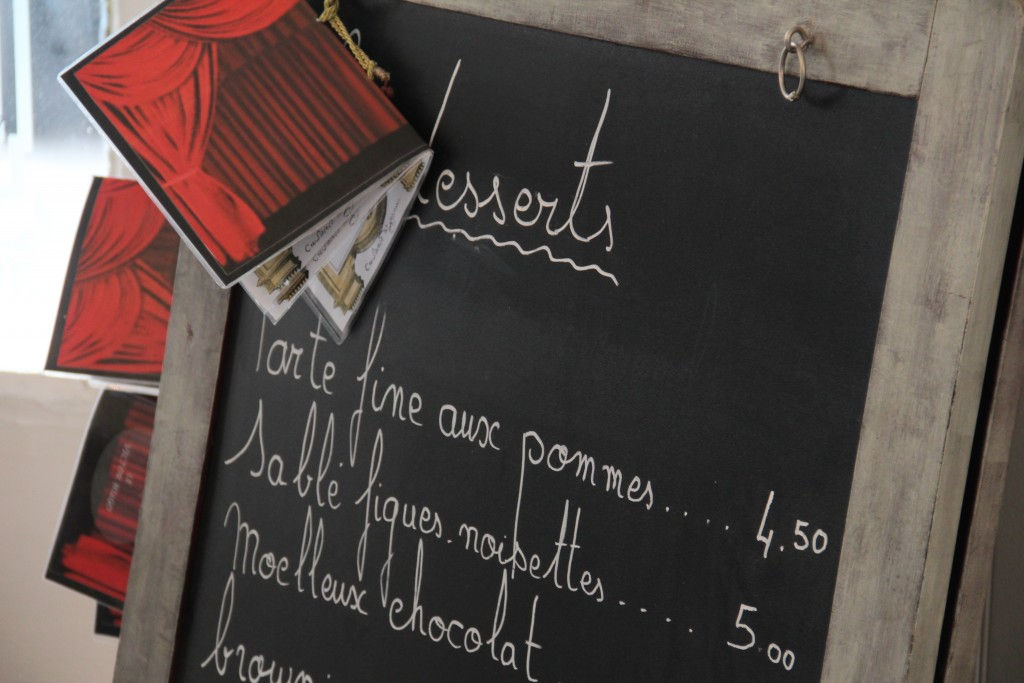 desserts
Tarte fine aux pommes..... 4.50
Sablé figues.noisettes..... 5.00
Moelleux chocolat